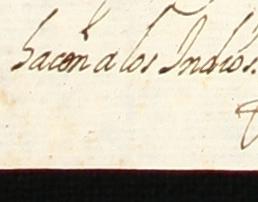 hacen a los Indios.